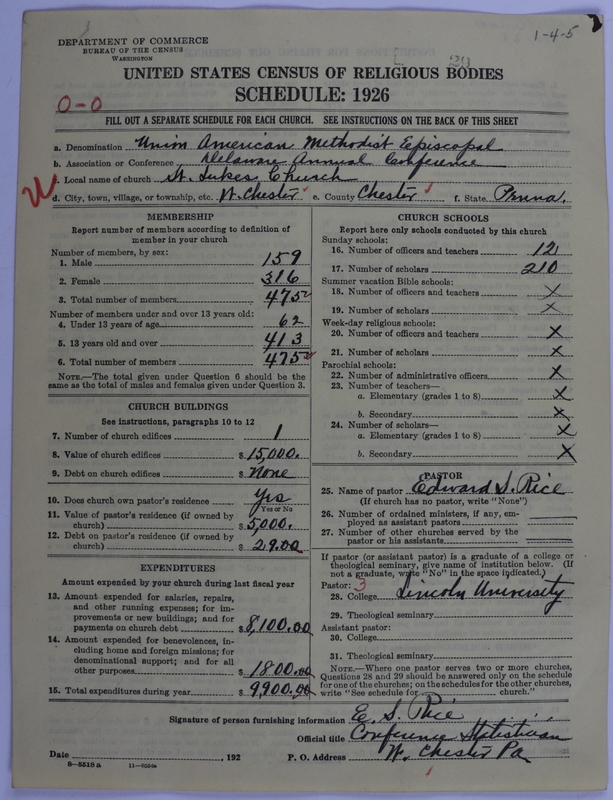 1-4-5
DEPARTMENT OF COMMERCE
BUREAU OF THE CENSUS
WASHINGTON
UNITED STATES CENSUS OF RELIGIOUS BODIES
SCHEDULE: 1926
0-0
FILL OUT A SEPARATE SCHEDULE FOR EACH CHURCH. SEE INSTRUCTIONS ON THE BACK OF THIS SHEET
a. Denomination Union American Methodist Episcopal
b. Association or Conference Delaware Annual Conference
c. Local name of church St. Lukes Church
d. City, town, village, or township, etc. W. Chester e. County Chester f. State Penna.
MEMBERSHIP
Report number of members according to definition of
member in your church
Number of members, by sex:
1. Male 159
2. Female 316
3. Total number of members 475
Number of members under and over 13 years old:
4. Under 13 years of age 62
5. 13 years old and over 413
6. Total number of members 475
NOTE.—The total given under Question 6 should be
the same as the total of males and females given under Question 3.
CHURCH BUILDINGS
See instructions, paragraphs 10 to 12
7. Number of church edifices 1
8. Value of church edifices $15,000.
9. Debt on church edifices $None
10. Does church own pastor's residence Yes
Yes or No
11. Value of pastor's residence (if owned by
church) $5,000.
12. Debt on pastor's residence (if owned by
church) $29.00
EXPENDITURES
Amount expended by your church during last fiscal year
13. Amount expended for salaries, repairs,
and other running expenses; for im-
provements or new buildings; and for
payments on church debt $8,100.00
14. Amount expended for benevolences, in-
cluding home and foreign missions; for
denominational support; and for all
other purposes $1800.00
15. Total expenditures during year $9900.00
CHURCH SCHOOLS
Report here only schools conducted by this church
Sunday schools:
16. Number of officers and teachers 12
17. Number of scholars 210
Summer vacation Bible schools:
18. Number of officers and teachers X
19. Number of scholars X
Week-day religious schools:
20. Number of officers and teachers X
21. Number of scholars X
Parochial schools:
22. Number of administrative officers X
23. Number of teachers—
a. Elementary (grades 1 to 8) X
b. Secondary X
24. Number of scholars—
a. Elementary (grades 1 to 8) X
b. Secondary X
PASTOR
25. Name of pastor Edward S. Rice
(If church has no pastor, write "None")
26. Number of ordained ministers, if any, em-
ployed as assistant pastors
27. Number of other churches served by the
pastor or his assistants
If pastor (or assistant pastor) is a graduate of a college or
theological seminary, give name of institution below. (If
not a graduate, write "No" in the space indicated.)
Pastor: 3
28. College Lincoln University
29. Theological seminary
Assistant pastor:
30. College
31. Theological seminary
NOTE.—Where one pastor serves two or more churches,
Questions 28 and 29 should be answered only on the schedule
for one of the churches; on the schedules for the other churches,
write "See schedule for church."
Signature of person furnishing information E. S. Rice
Official title Conference Statistician
Date , 192 P. O. Address W. Chester Pa
8-5518 a